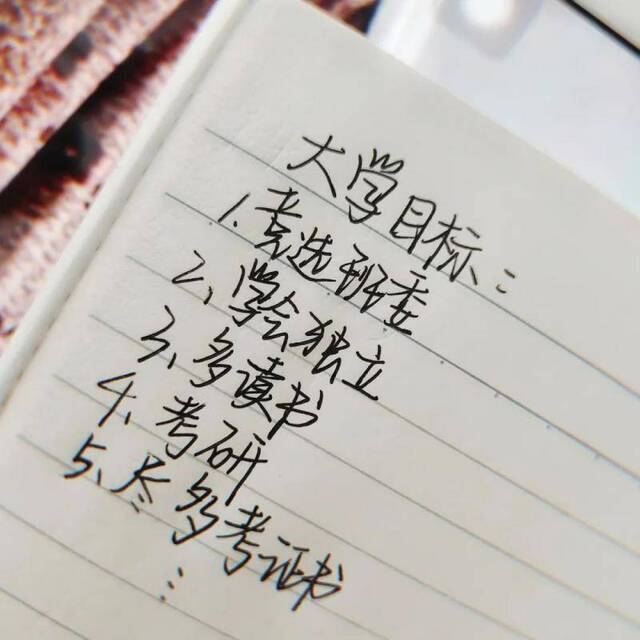 大学目标:
1.竞选班委
2、学会独立
3、多读书
4、考研
5、尽多考证书
⋮